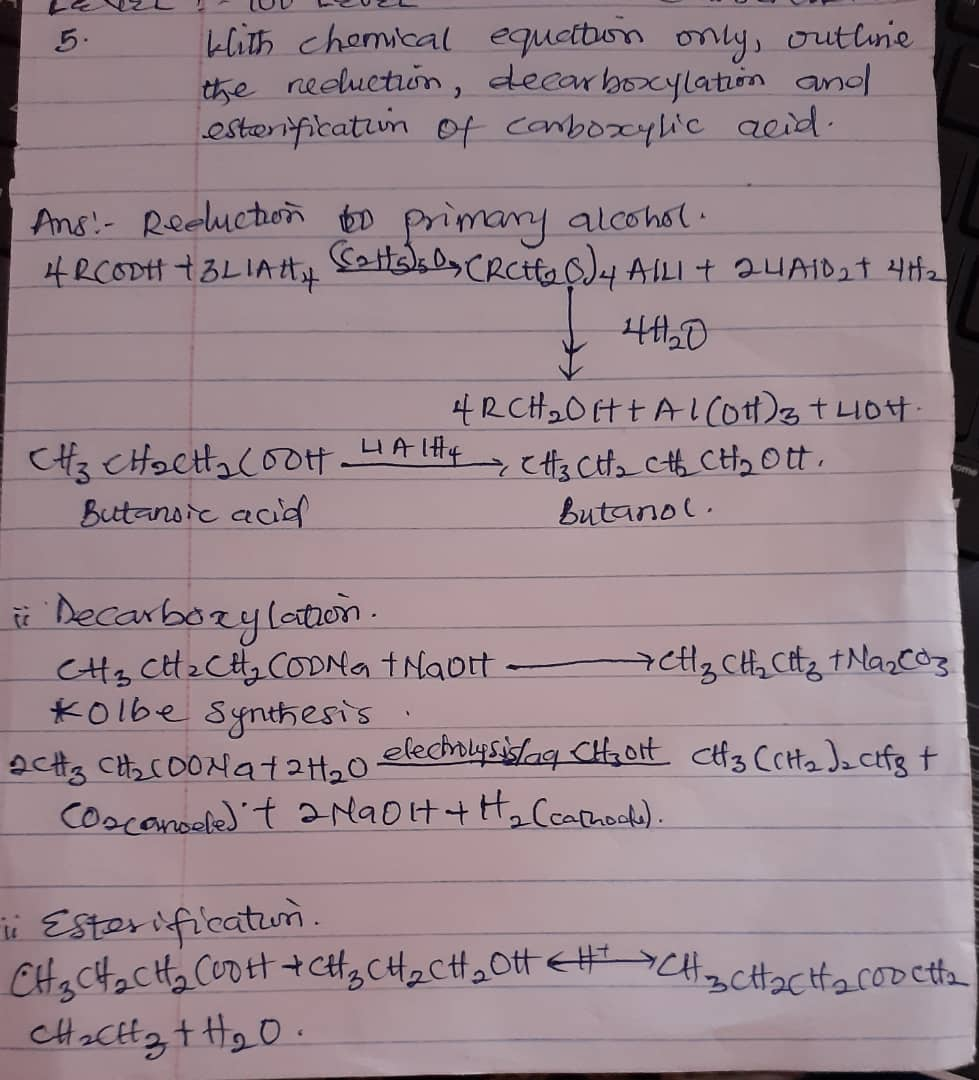 5. With chemical equation only, outline
the reduction, decarboxylation and
esterification of carboxylic acid.
Ans:- Reduction to primary alcohol.
4RCOOH + 3LiAlH4 (C2H5)5O> (RCH2O)4 AlLi + 2LiAlO2 + 4H2
4H2O
4RCH2OH + Al(OH)3 + LiOH.
CH3CH2CH2COOH LiAlH4 → CH3CH2CH2CH2OH.
Butanoic acid Butanol.
ii Decarboxylation.
CH3CH2CH2COONa + NaOH → CH3CH2CH3 + Na2CO3
Kolbe Synthesis.
2CH3CH2COONa + 2H2O electrolysis/aq CH3OH CH3(CH2)2CH3 +
CO2(anode) + 2NaOH + H2(cathode).
ii Esterification.
CH3CH2CH2COOH + CH3CH2CH2OH ←H+→ CH3CH2CH2COOCH2
CH2CH3 + H2O.